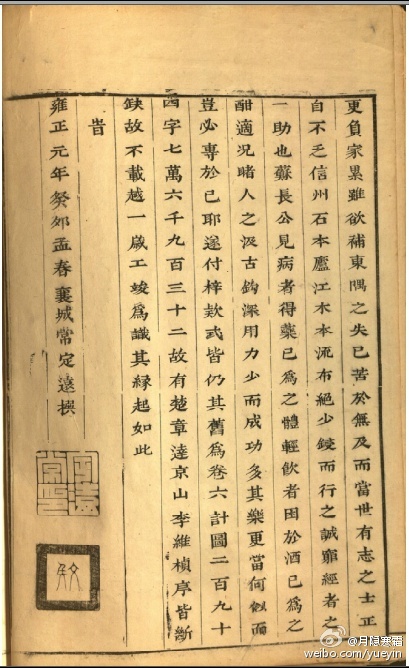 更負家累雖欲補東隅之失已苦於無及而當世有志之士正
自不乏信州石本廬江木本流布絕少鋟而行之誠窮經者之
一助也蘇長公見病者得藥己為之體輕飲者困於酒己為之
酣適況睹人之汲古鈎深用力少而成功多其樂更當何似而
豈必專於己耶遂付梓款式皆仍其舊為卷六計圖二百九十
四字七萬六千九百三十二故有楚章達京山李維楨序皆斷
缺故不載越一歲工竣為識其緣起如此
昔
雍正元年癸卯孟春襄城常定遠撰
@月隐寒霜
weibo.com/yueyin